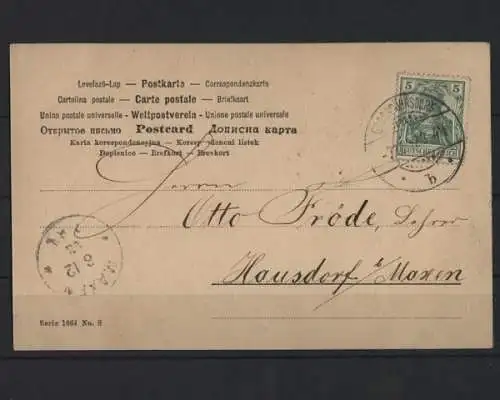 Levelező-Lap — Postkarta — Correspondenzkarte
Cartolina postale — Carte postale — Briefkaart
Union postale universelle — Weltpostverein — Unione postale universale
Открытое письмо Postcard Дописна карта
Karta korespondencyjna — Korespondenční lístek
Dopisnice — Brefkort — Brevkort
5 5
DEUTSCHES REICH
b
Herrn
Otto Fröde, Lehrer
Hausdorf b/Maxen
MAXEN
8 12
Serie 1664 No. 8